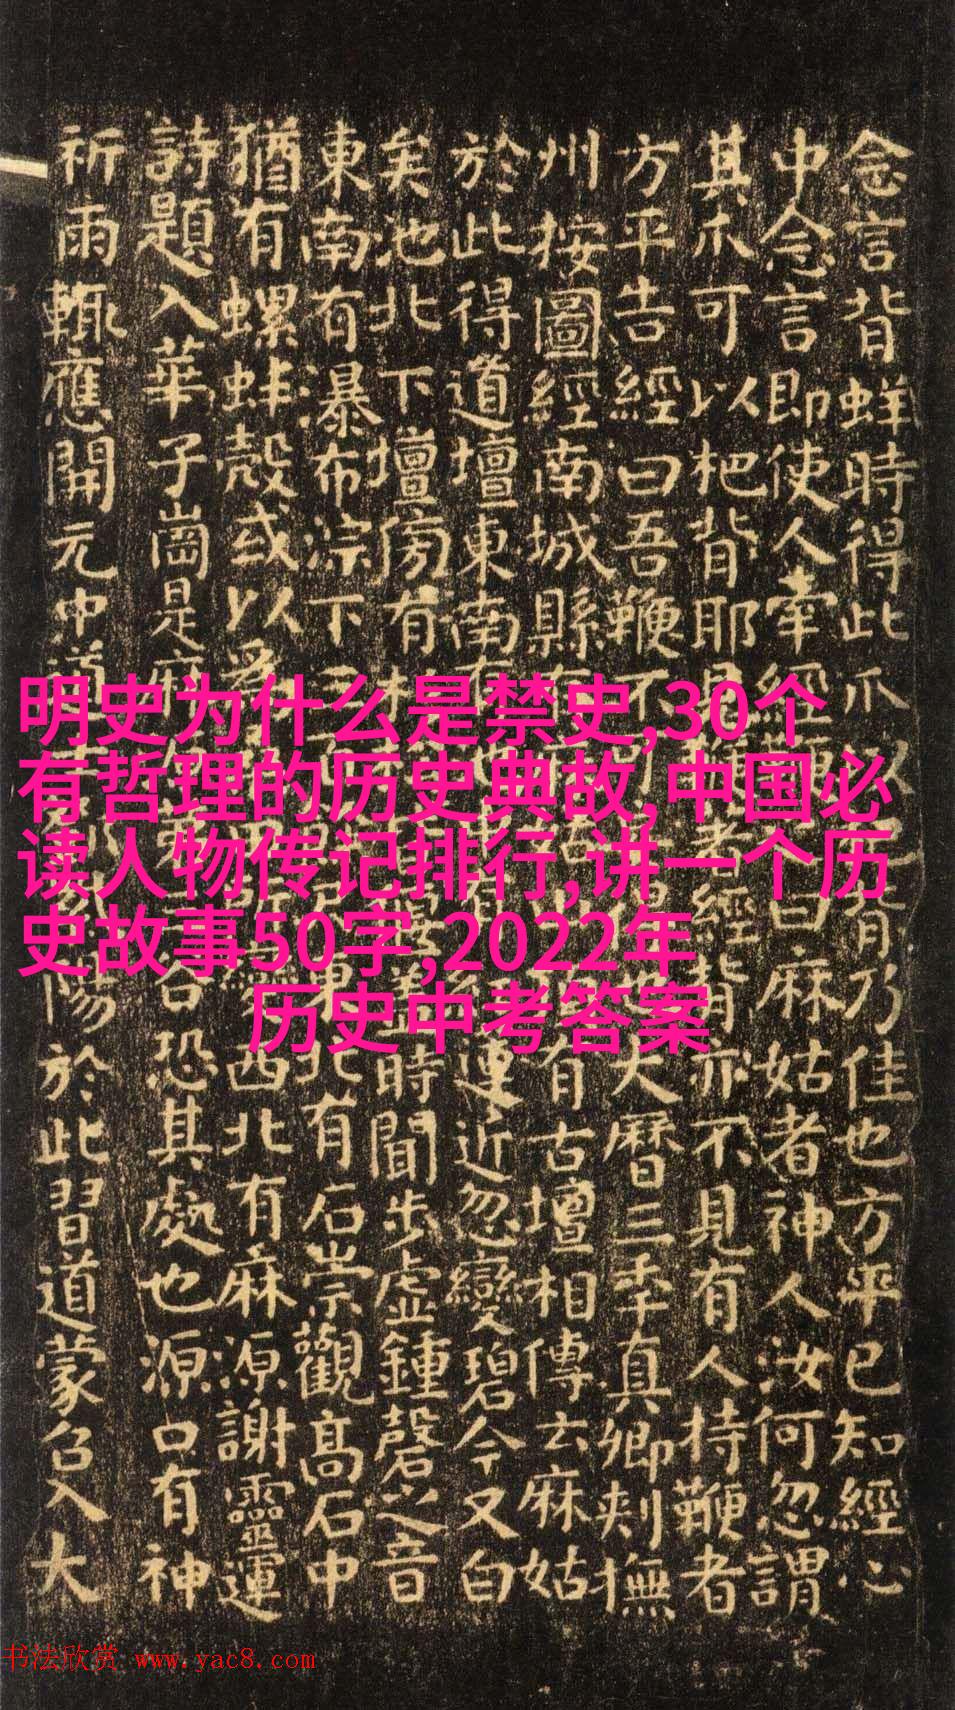 念言背蛘時得此爪以爬背乃佳也方平已知經心
中念言即使人牽經鞭曰麻姑者神人汝何忽謂
其爪可以杷背耶見鞭著經背亦不見有人持鞭者
方平告經曰吾鞭不可大曆三年真卿刺撫
州按圖經南城縣有有古壇相傳云麻姑
於此得道壇東南有蓮近忽變碧今又白
矣池北下壇傍有杉蓋時聞步虛鍾磬之音
東南有瀑布淙下三東北有石崇觀高石中
猶有螺蚌殼或以為西北有麻源謝靈運
詩題入華子崗是麻谷恐其處也源口有神
祈雨輒應開元中道士陽於此習道蒙召入大
明史为什么是禁史,30个
有哲理的历史典故,中国必
读人物传记排行,讲一个历
史故事50字,2022年
历史中考答案
书法欣赏 www.yac8.com